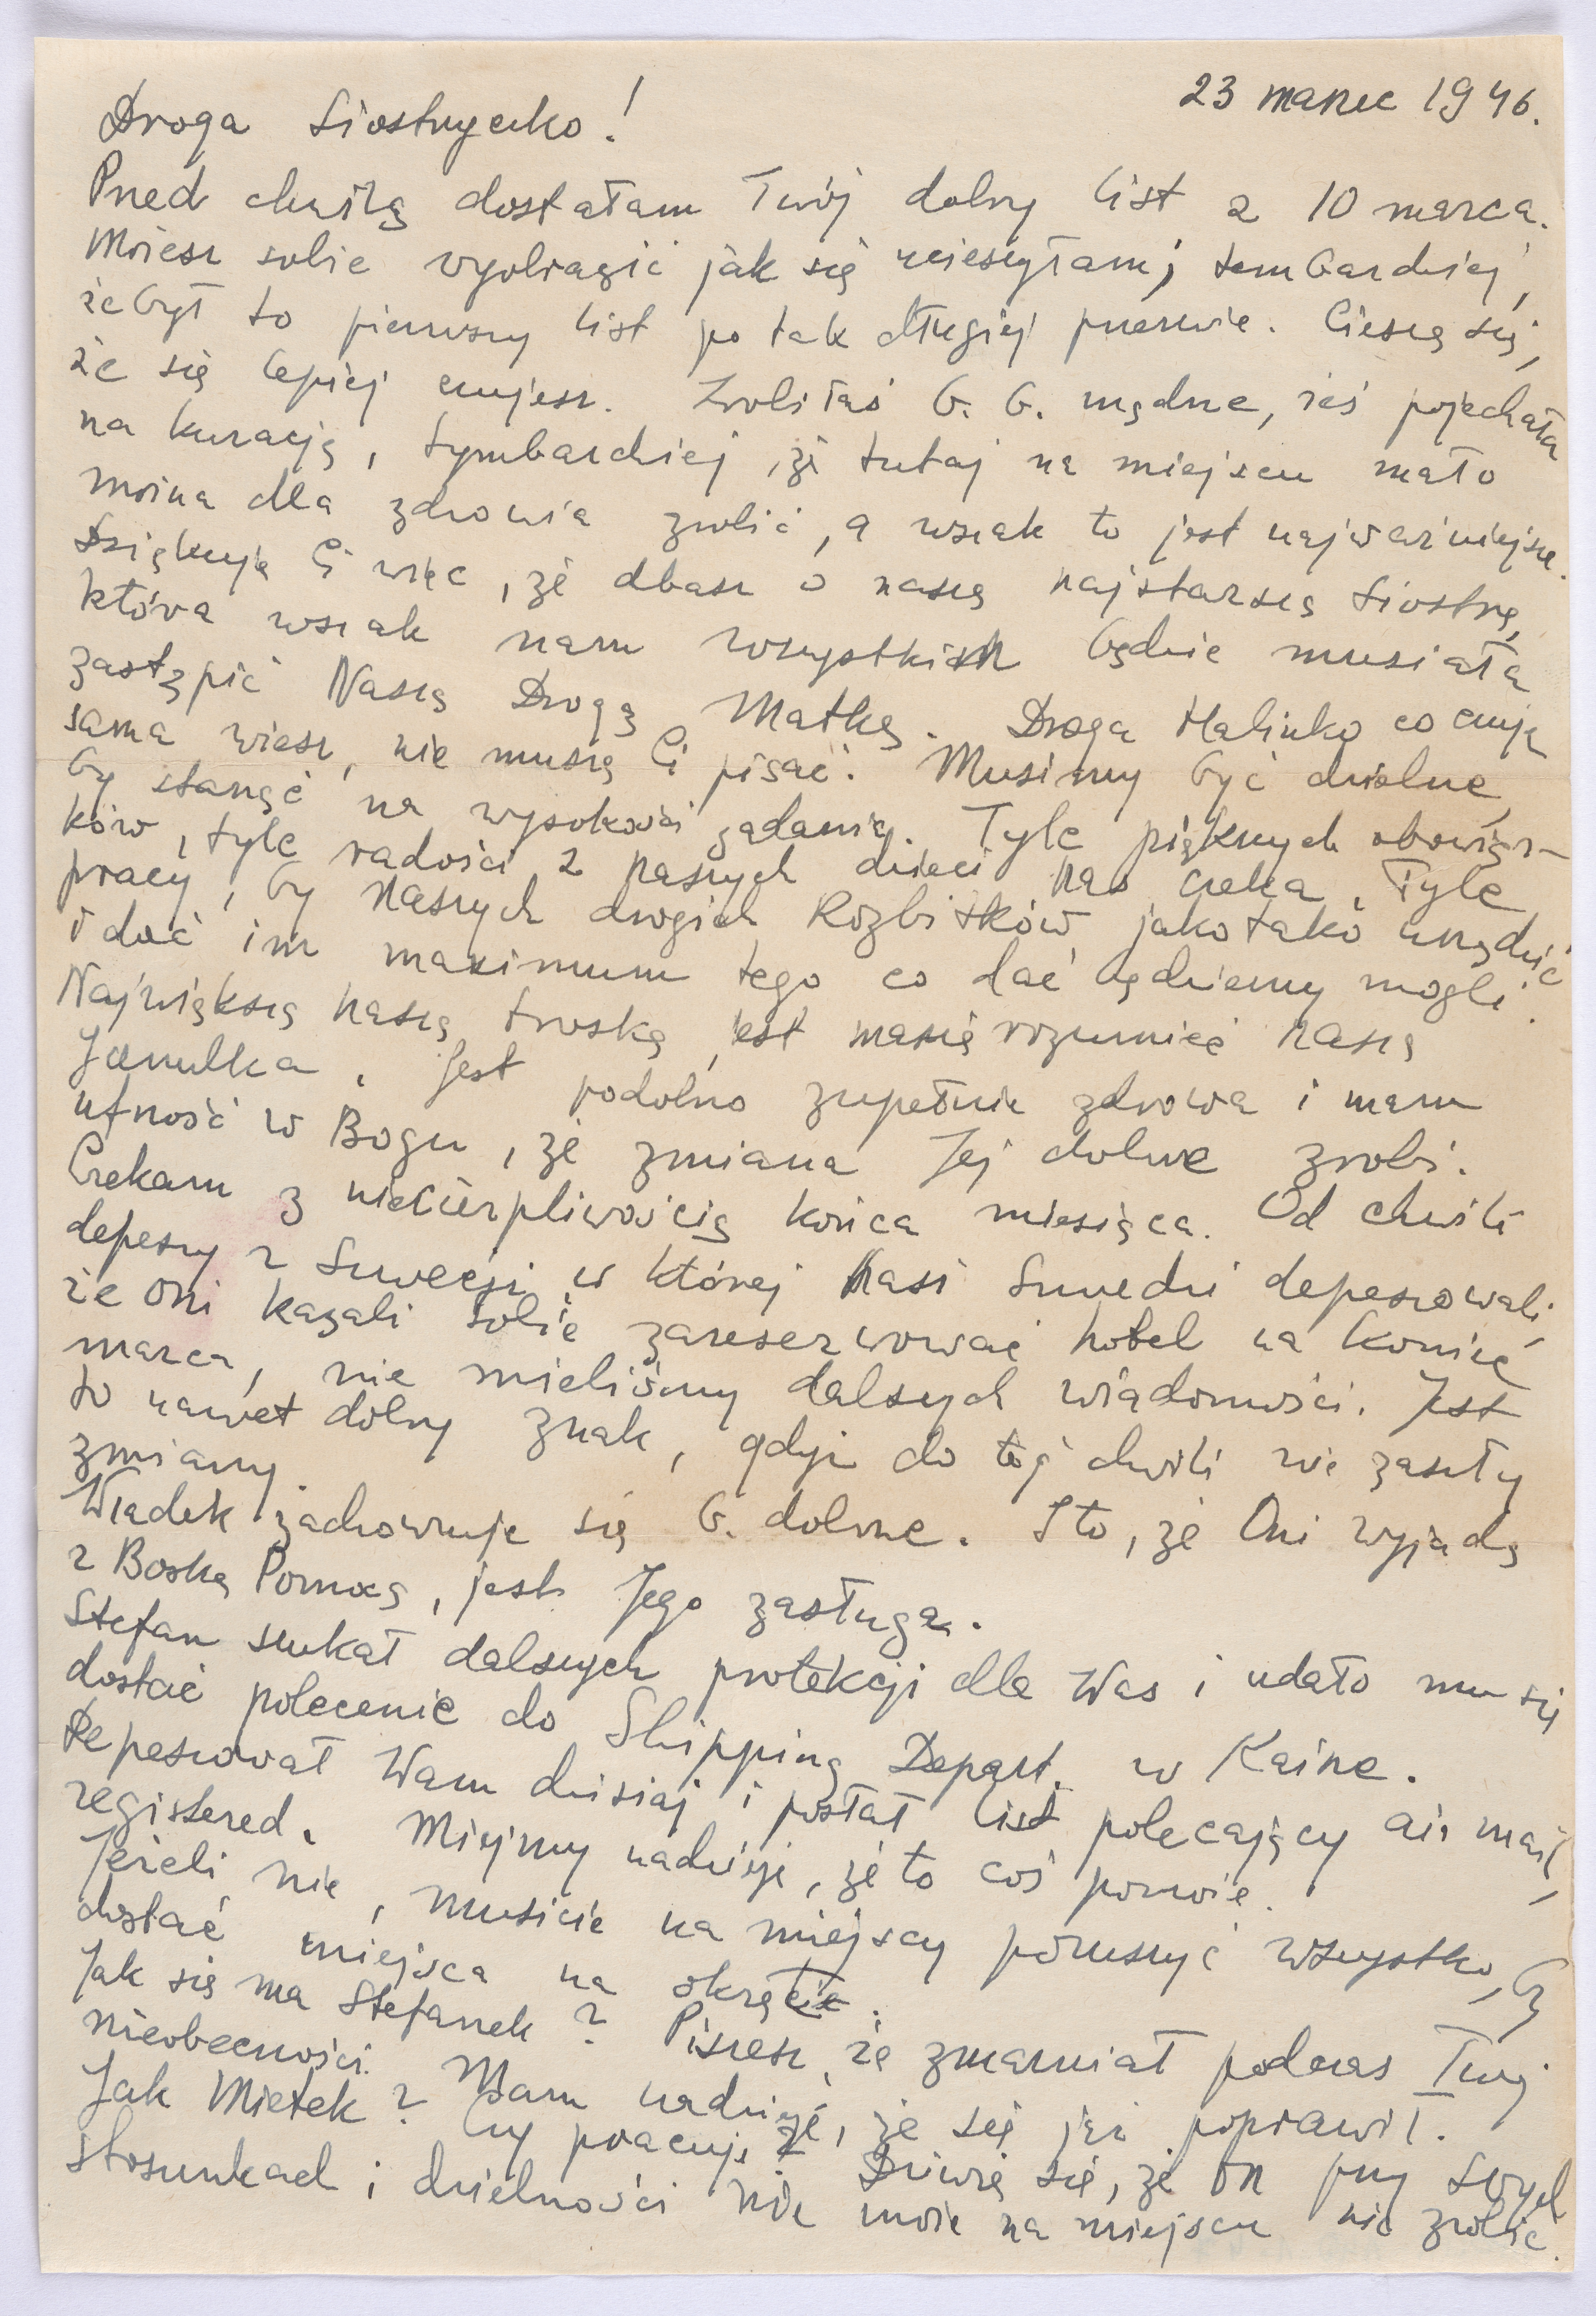 23 marzec 1946.
Droga Siostrzyczko!
Przed chwilą dostałam Twój dobry list z 10 marca.
Możesz sobie wyobrazić jak się ucieszyłam, tembardziej,
że był to pierwszy list po tak długiej przerwie. Cieszę się,
że się lepiej czujesz. Zrobiłaś b. b. mądrze, żeś pojechała
na kurację, tymbardziej, że tutaj na miejscu mało
można dla zdrowia zrobić, a wszak to jest najważniejsze.
Dziękuję Ci więc, że dbasz o naszą najstarszą Siostrę,
która wszak nam wszystkim będzie musiała
zastąpić Naszą Drogą Matkę. Droga Halinko co czuję
sama wiesz, nie muszę Ci pisać. Musimy być dzielne,
by stanąć na wysokości zadania. Tyle pięknych obowiąz-
ków, tyle radości z naszych dzieci nas czeka. Tyle
pracy, by naszych drogich Rozbitków jako tako urządzić
i dać im maximum tego co dać będziemy mogli.
Największą naszą troską jest rozumieć naszą
Janulka. Jest podobno zupełnie zdrowa i mam
ufność w Bogu, że zmiana Jej dobrze zrobi.
Czekam z niecierpliwością końca miesiąca. Od chwili
depeszy z Szwecji w której Nasi Szwedzi depeszowali,
że oni kazali sobie zareserwować hotel na koniec
marca, nie mieliśmy dalszych wiadomości. Jest
to nawet dobry znak, gdyż do tej chwili nie zaszły
zmiany.
Władek zachowuje się b. dobrze. I to, że Oni wyjadą
z Boską Pomocą, jest Jego zasługa.
Stefan szukał dalszych protekcji dla Was i udało mu się
dostać polecenie do Shipping Depart. w Kairze.
Depeszował Wam dzisiaj i posłał list polecający air mail,
registered. Miejmy nadzieję, że to coś pomoże.
Jeżeli nie, musicie na miejscu poruszyć wszystko, by
dostać miejsca na okręcie.
Jak się ma Stefanek? Piszesz, że zmarniał podczas Twej
nieobecności. Mam nadzieję, że się już poprawił.
Jak Mietek? Czy pracuje? Dziwię się, że On przy Swych
stosunkach i dzielności nie może na miejscu nic zrobić.